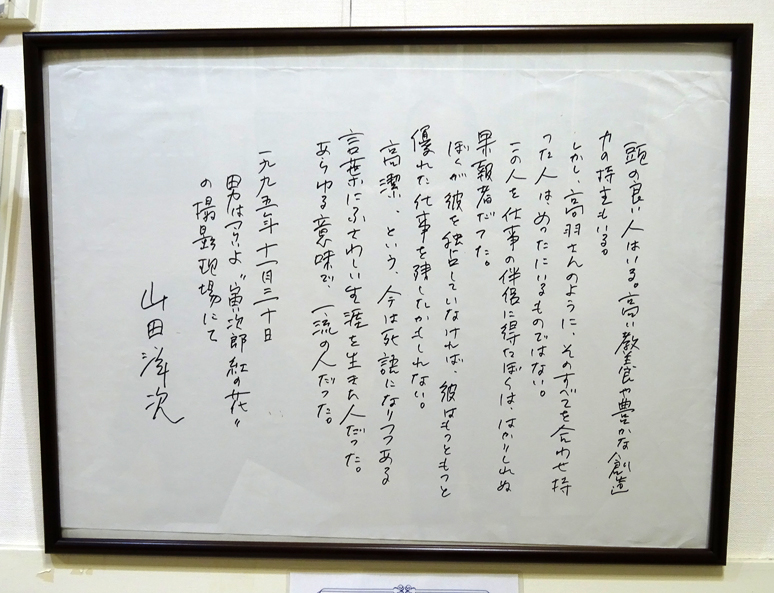 頭の良い人はいる。高い教養や豊かな創造
力の持主もいる。
しかし、高羽さんのように、そのすべてを合わせ持
った人はめったにいるものではない。
この人を仕事の伴侶に得たぼくは、はかりしれぬ
果報者だった。
ぼくが彼を独占していなければ、彼はもっともっと
優れた仕事を残したかもしれない。
高潔、という、今は死語になりつつある
言葉にふさわしい生涯を生きた人だった。
あらゆる意味で、一流の人だった。
一九九五年十一月三十日
男はつらいよ〝寅次郎紅の花〟
の撮影現場にて
山田洋次